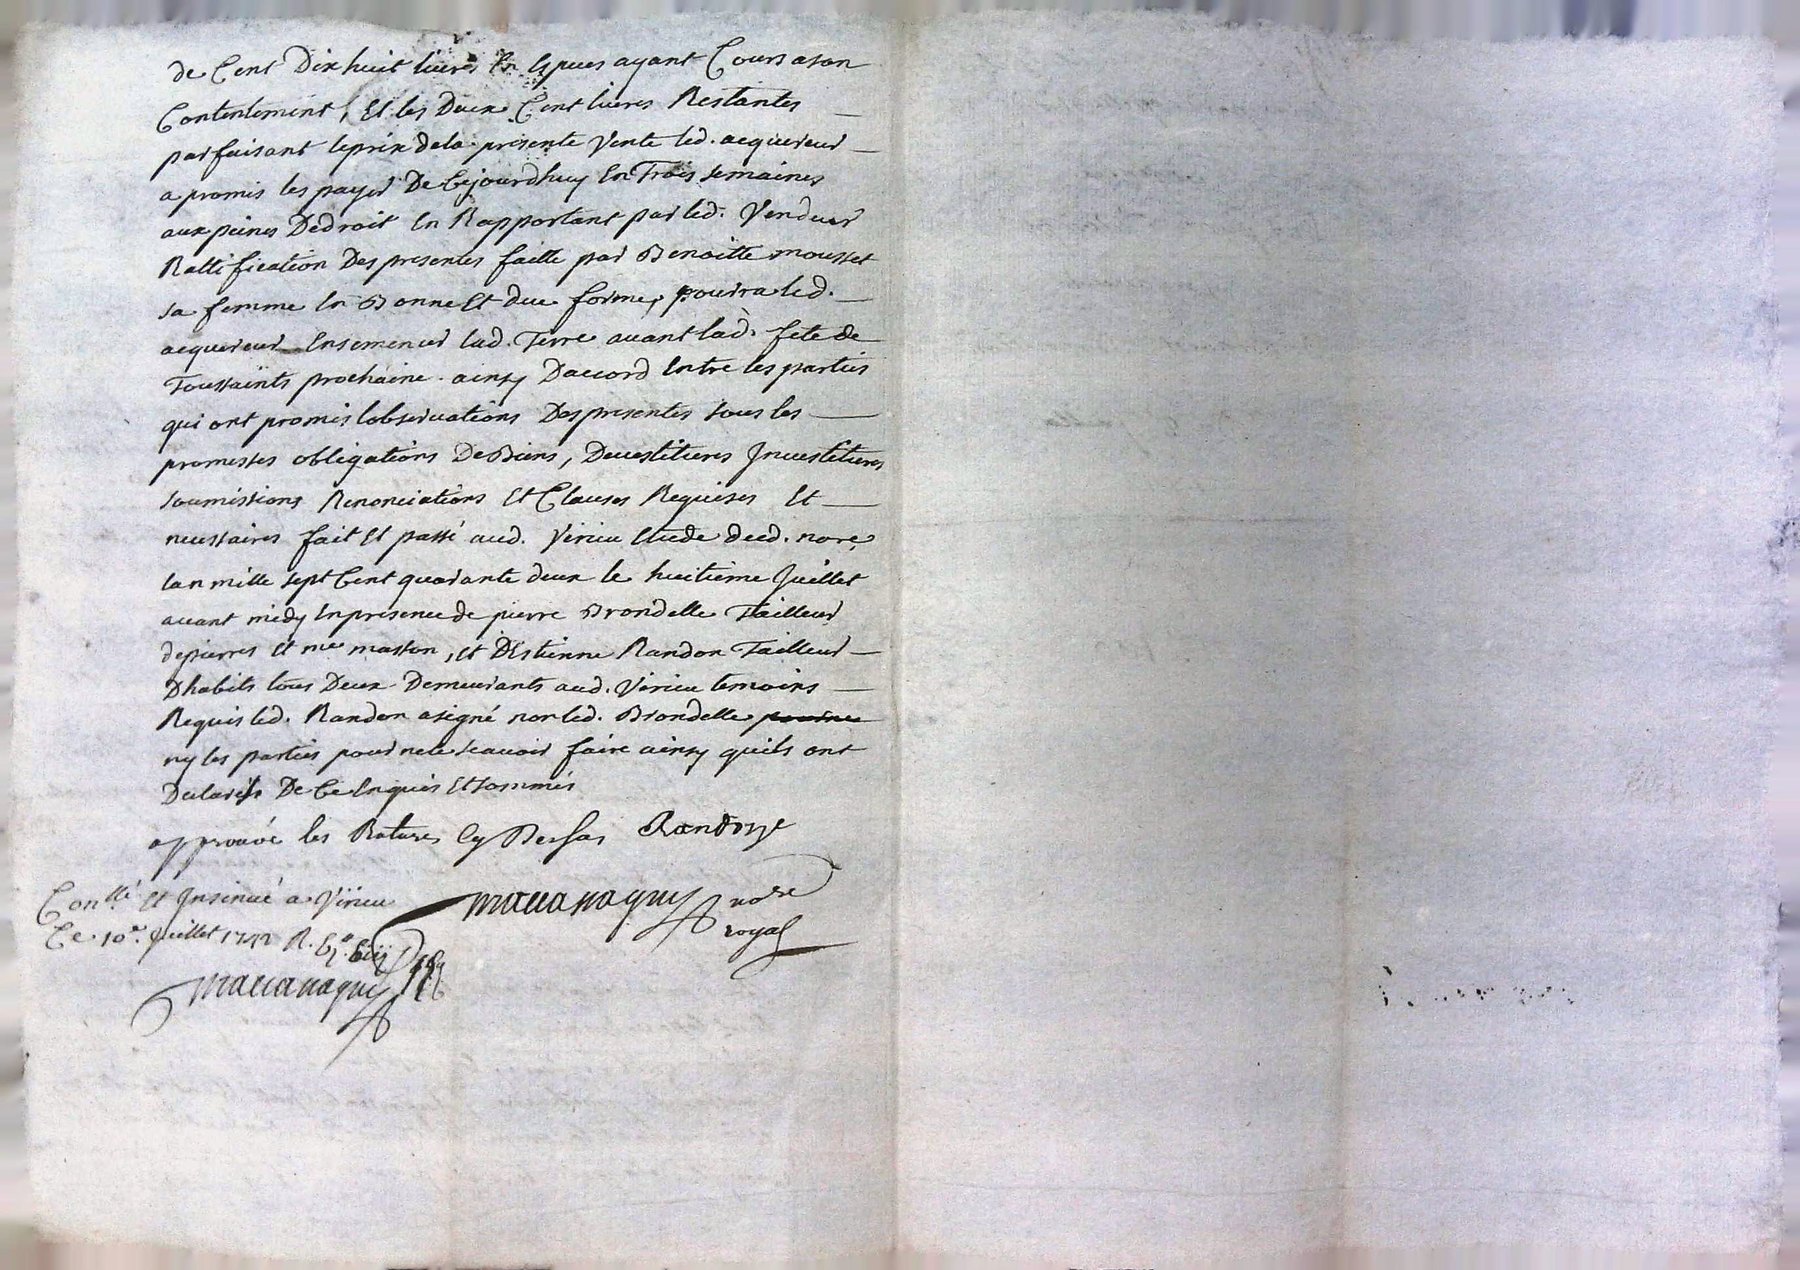 de Cent Dix huit livres En Espuces ayant Cours a son
Contentement, Et les Deux Cent livres Restantes
parfaisant le prix de la presente Vente led. acquereur
a promis les payer De Cejourdhuy En Trois semaines
aux peines De droit En Rapportant par led. Vendeur
Rattification Des presentes faitte par Benoitte mousset
sa femme En Bonne Et due forme, pourra led.
acquereur Ensemencer lad. Terre avant lad. fete de
Toussaints prochaine. ainsy Daccord Entre les parties
qui ont promis lobservations Des presentes sous les
promesses obligations De Biens, Devestitures Investitures
soumissions Renonciations Et Clauses Requises Et
necessaires fait Et passé aud. Virieu Etude dud. nore,
lan mille sept Cent quarante deux le huitieme Juillet
avant midy En presence de pierre Brondelle Tailleur
de pierres Et me masson, et D'Estienne Randon Tailleur
Dhabits tous Deux Demeurants aud. Virieu temoins
Requis led. Randon a signé non led. Brondelle
ny les parties pour ne le scavoir faire ainsy quils ont
Declarés De Ce Enquis Et sommés
approuvé les Ratures Cy Dessus Randon
Conllé Et Insinué a Virieu
nore
royal
Ce 10e. Juillet 1742 R.